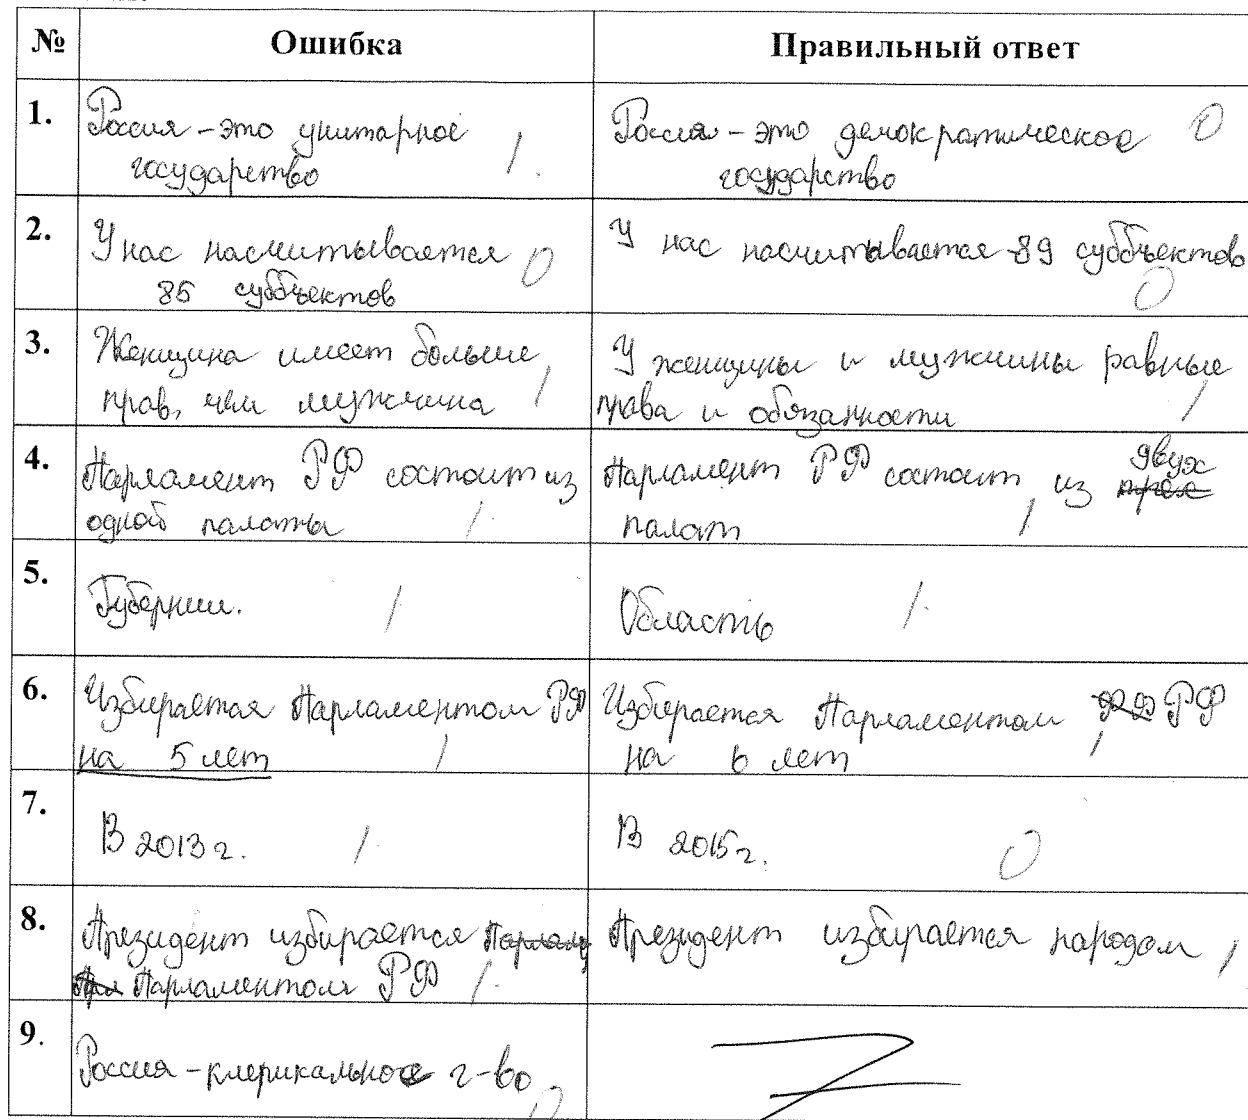 № Ошибка Правильный ответ
1. Россия - это унитарное
государство 1.
Россия - это демократическое 0
государство
2. У нас насчитывается
85 суббъектов 0
У нас насчитывается 89 суббъектов
0
3. Женщина имеет больше
прав, чем мужчина 1
У женщины и мужчины равные
права и обязанности 1
4. Парламент РФ состоит из
одной палаты 1.
Парламент РФ состоит из двух
палат 1
5. Губернии. 1
Область 1.
6. Избирается Парламентом РФ
на 5 лет 1
Избирается Парламентом РФ
на 6 лет 1
7. В 2013 г. 1.
В 2015 г. 0
8. Президент избирается
Парламентом РФ 1.
Президент избирается народом 1
9. Россия - клерикальное г-во 0